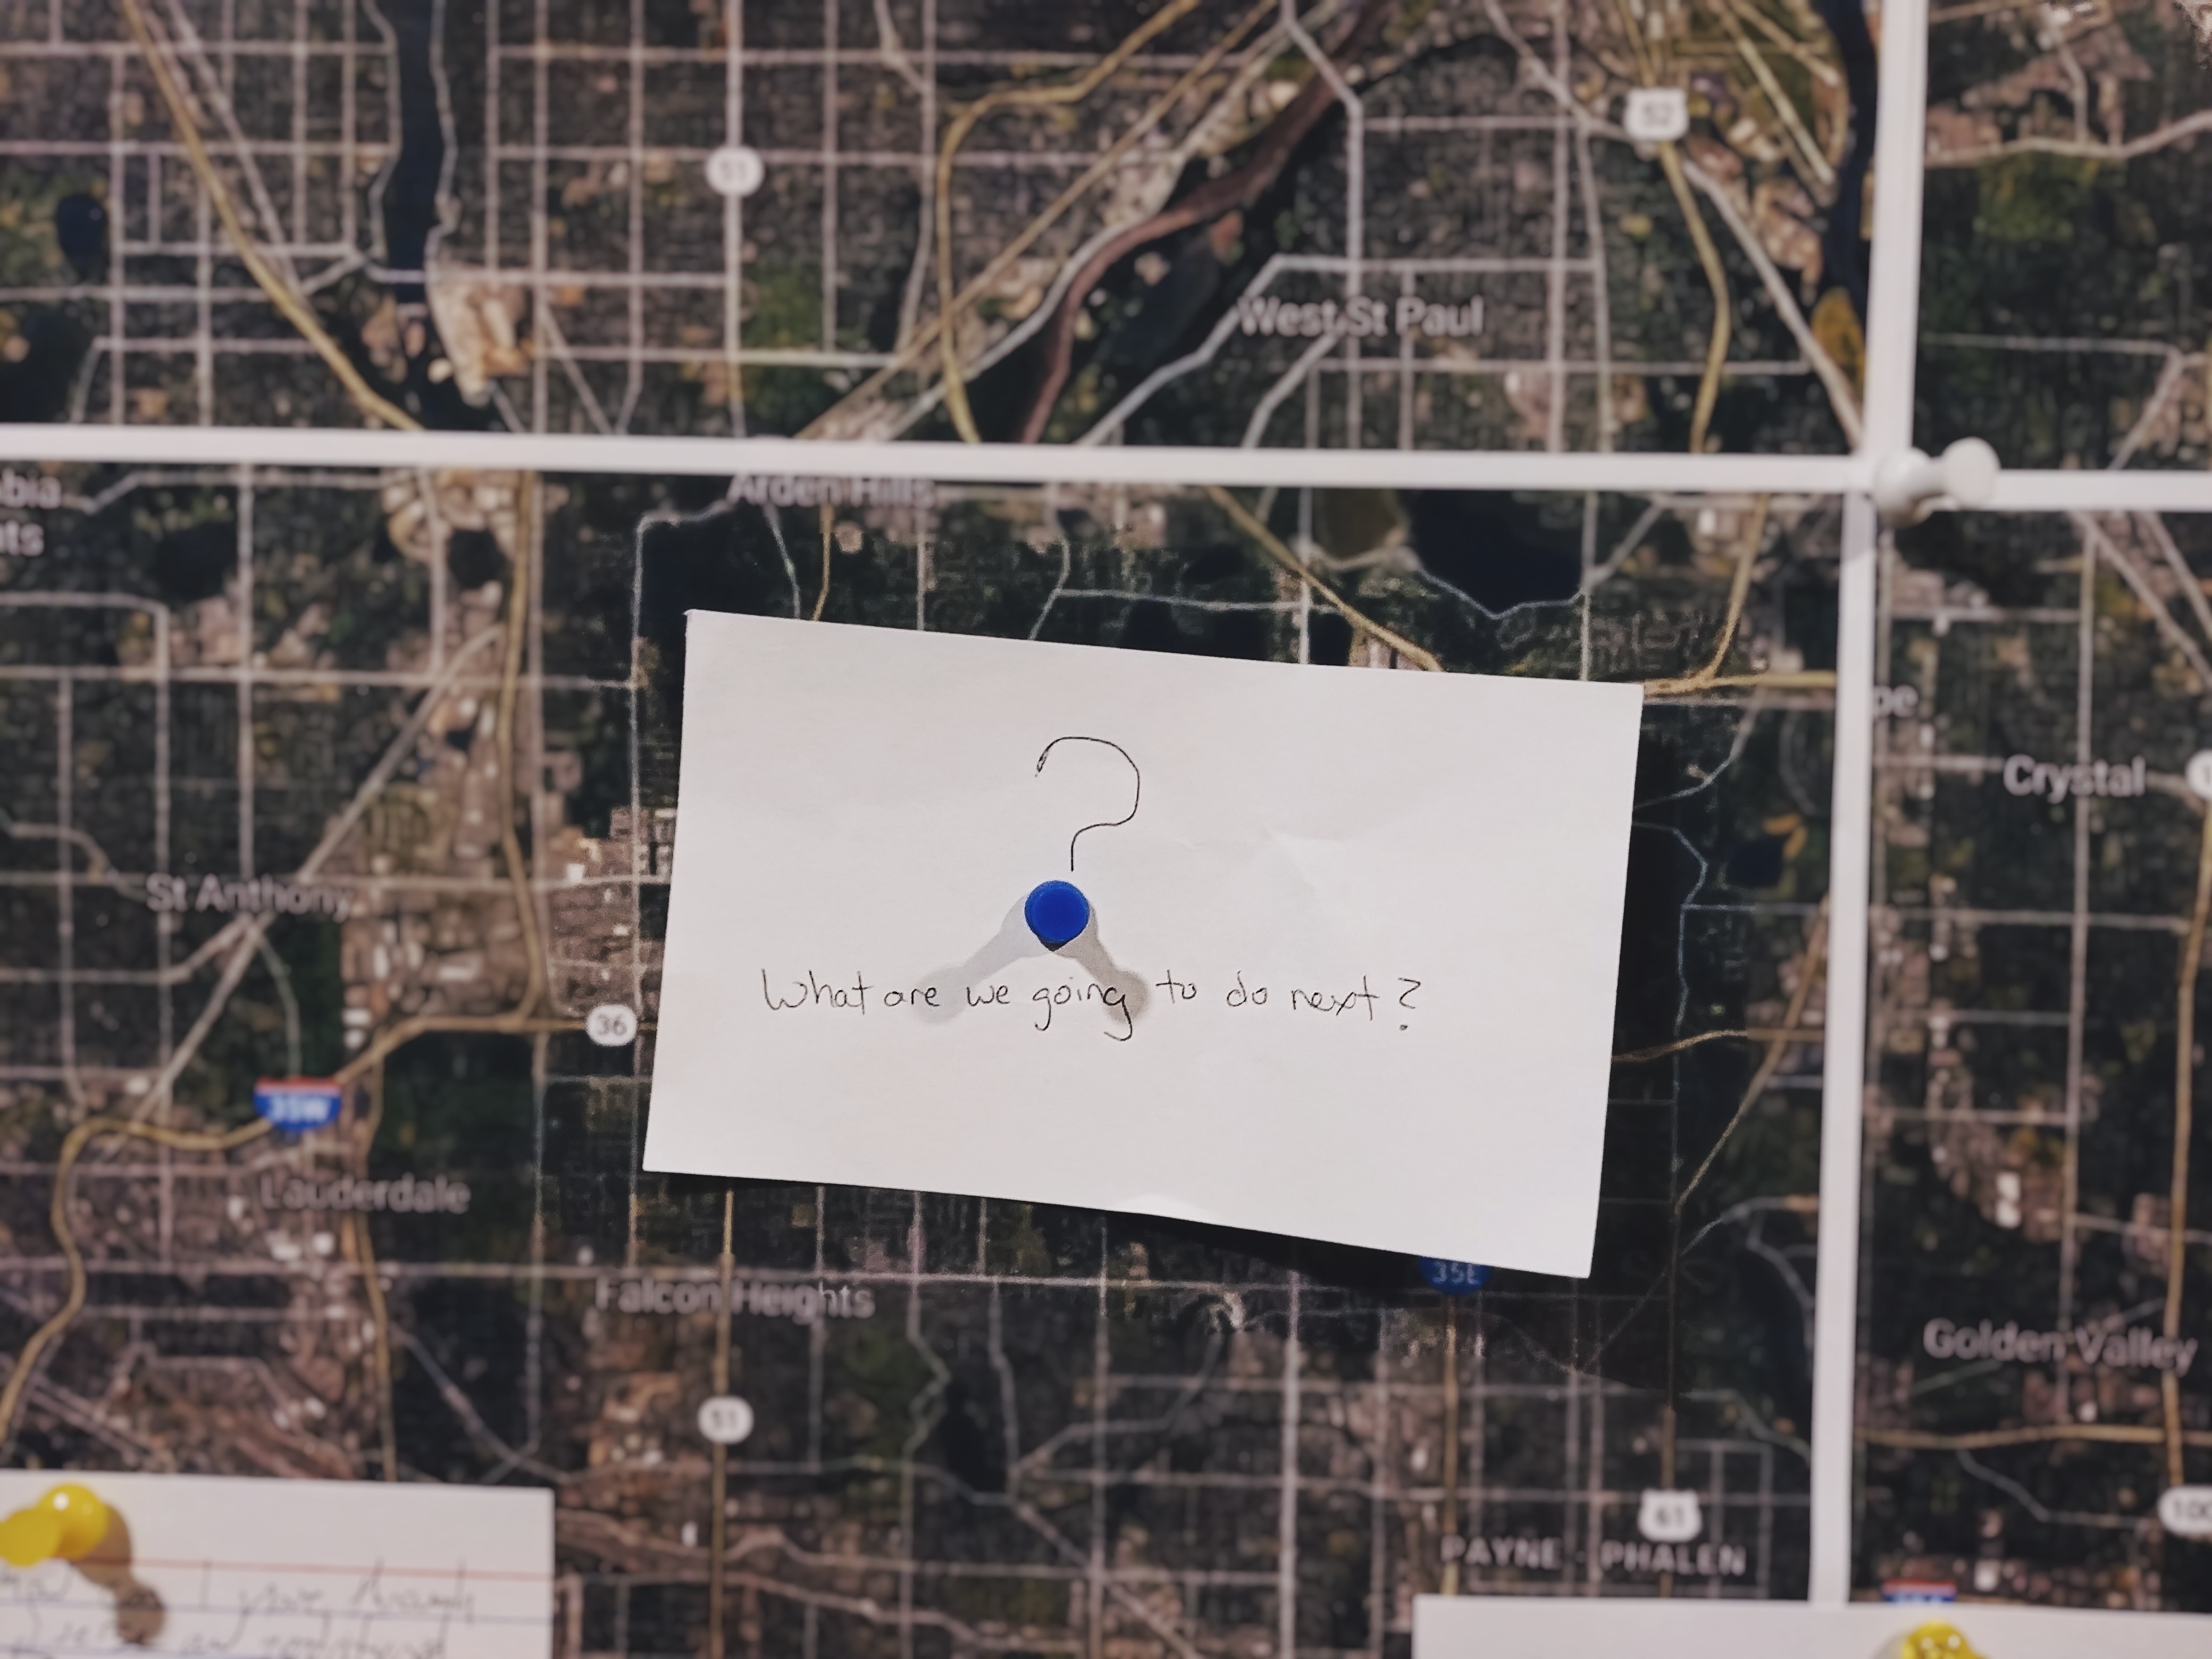 52
51
West St Paul
Arden Hills
Crystal
?
St Anthony
What are we going to do next?
36
35W
Lauderdale
35E
Falcon Heights
Golden Valley
51
61
100
PAYNE - PHALEN
I